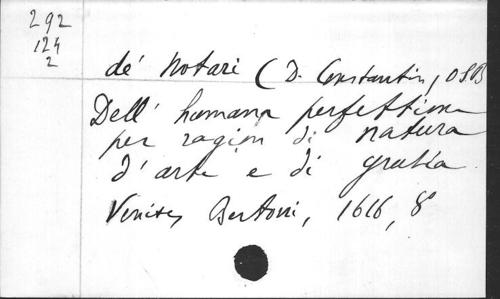 292
124
2
dé Notari (D. Constantin, OSB
Dell' humana perfettione
per ragion di natura
d'arte e di gratia
Venise, Bertoni, 1616, 8°